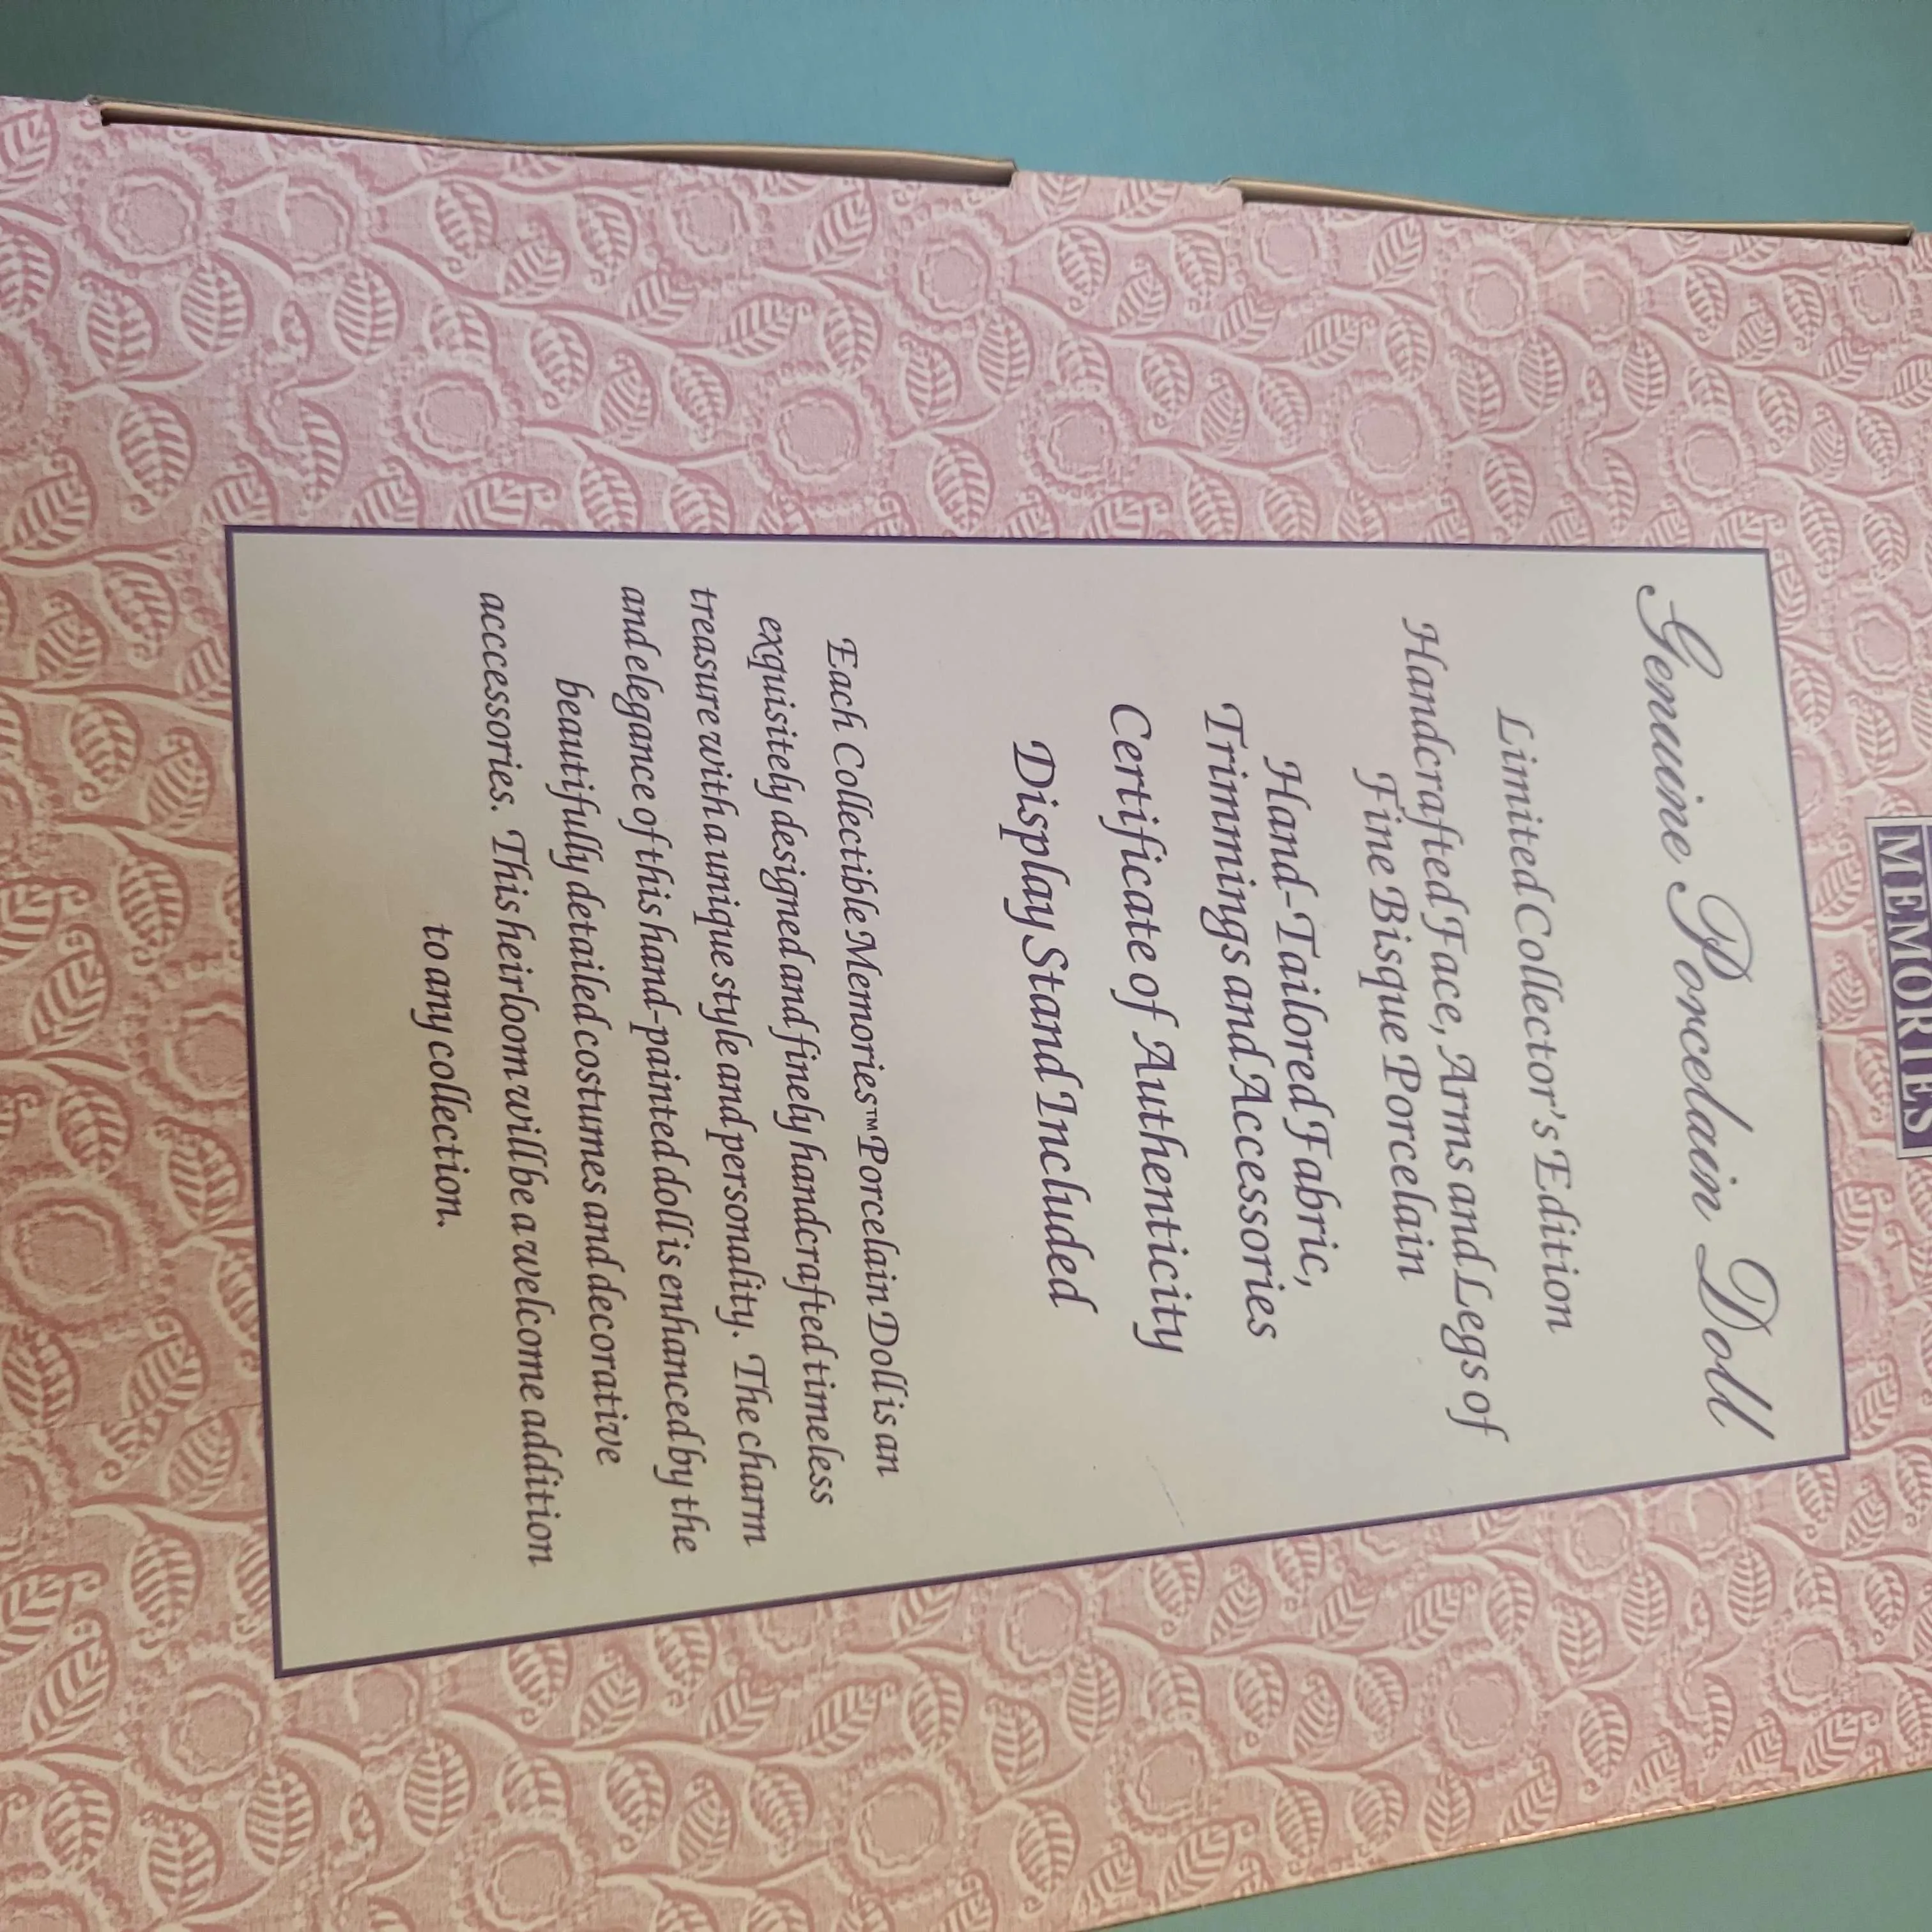 MEMORIES
Genuine Porcelain Doll
Limited Collector's Edition
Handcrafted Face, Arms and Legs of
Fine Bisque Porcelain
Hand-Tailored Fabric,
Trimmings and Accessories
Certificate of Authenticity
Display Stand Included
Each Collectible Memories™ Porcelain Doll is an
exquisitely designed and finely handcrafted timeless
treasure with a unique style and personality. The charm
and elegance of this hand-painted doll is enhanced by the
beautifully detailed costumes and decorative
accessories. This heirloom will be a welcome addition
to any collection.